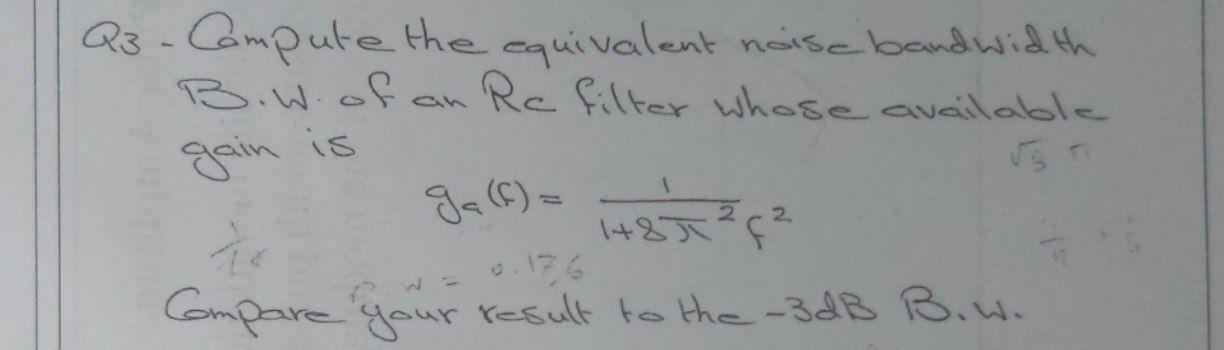 Q3 - Compute the equivalent noise bandwidth
B.W. of an Rc filter whose available
gain is
gₐ(f) = 1/(1+8π²f²)
0.176
Compare your result to the -3dB B.W.